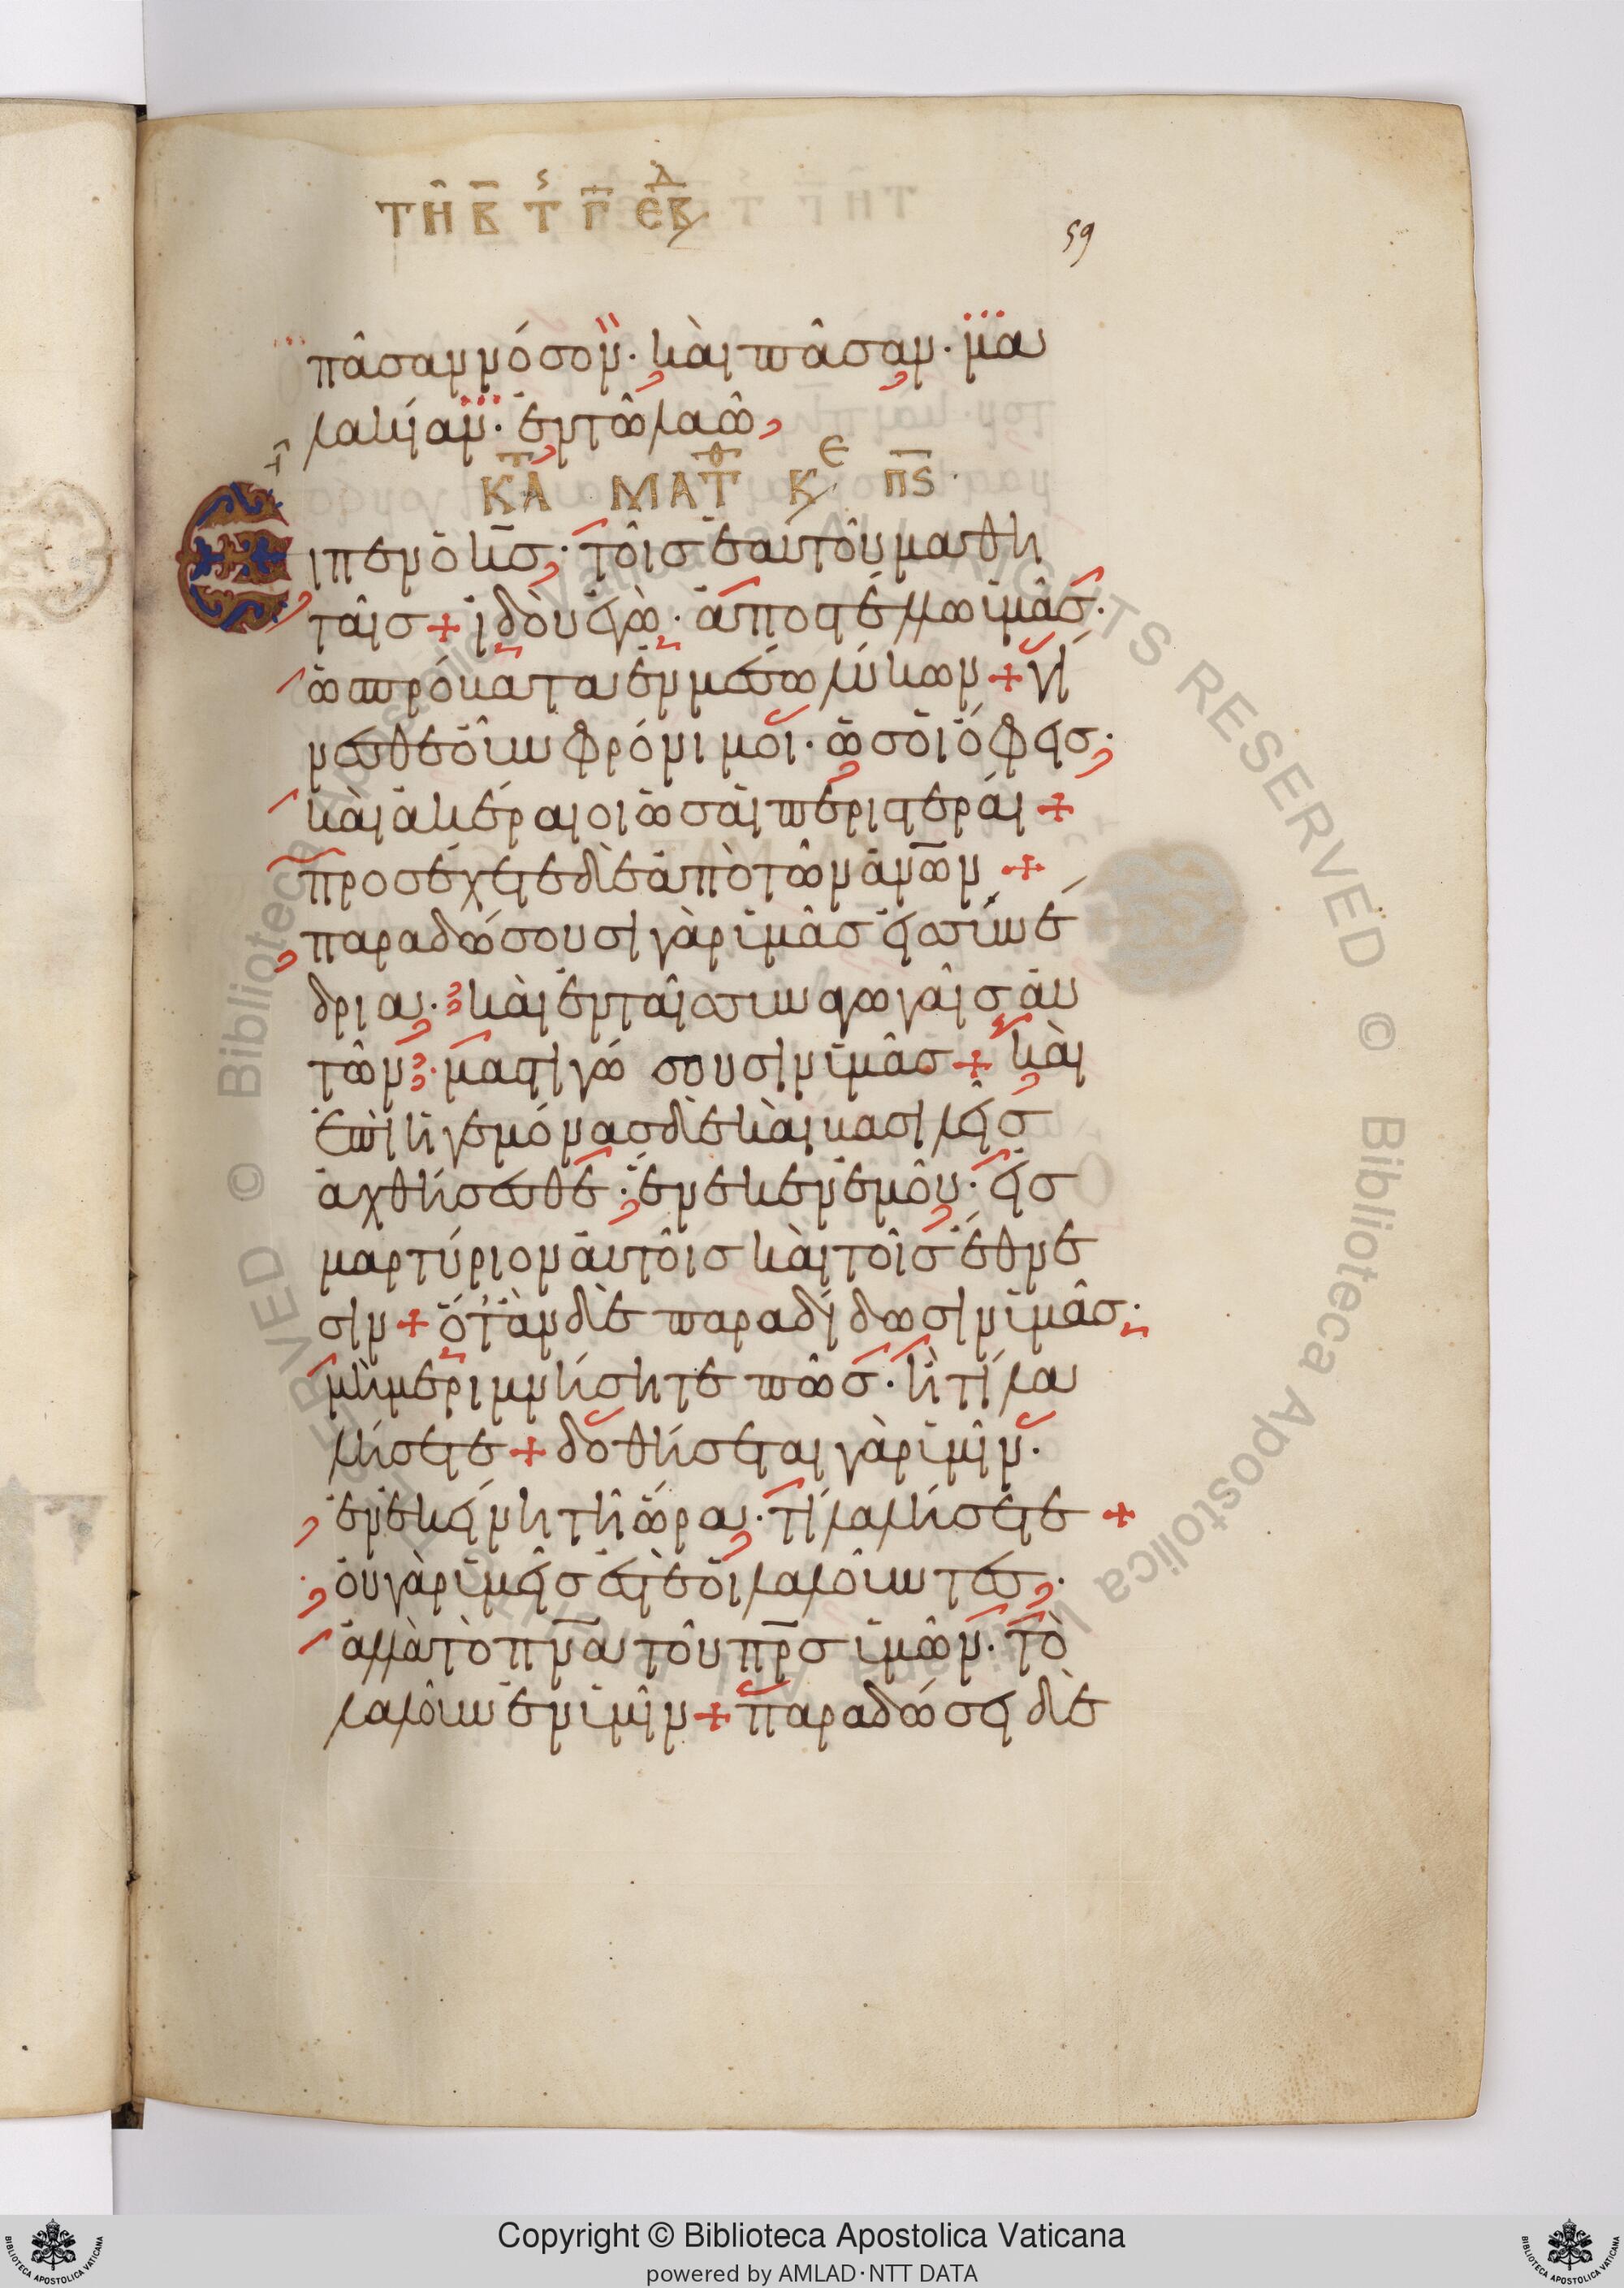 ΤΗ Β Τ Γ ΕΒΔ
59
πᾶσαν νόσον· καὶ πᾶσαν· μα
λακίαν· ἐν τῶ λαῶ,
ΚΑ ΜΑΤΘ Κε ΠϚ
Εἶπεν ὁ κς· τοῖς ἑαυτοῦ μαθη
ταῖς + ἰδοὺ ἐγὼ· ἀποστέλλω ἱμᾶς·
ὡς πρόβατα ἐν μέσω λύκων + γί
νεσθε οὖν φρόνιμοι· ὡς οἱ ὄφεις·
καὶ ἀκέραιοι ὡς αἱ περιστεραί +
προσέχετε δὲ ἀπὸ τῶν ἀνων +
παραδώσουσι γὰρ ἱμᾶς εἰς συνέ
δρια· καὶ ἐν ταῖς συναγωγαῖς αὐ
τῶν· μαστιγώσουσιν ἱμᾶς + καὶ
ἐπὶ ἡγεμόνας δὲ καὶ βασιλεῖς
ἀχθήσεσθε· ἕνεκεν ἐμοῦ· εἰς
μαρτύριον αὐτοῖς καὶ τοῖς ἔθνε
σιν + ὅταν δὲ παραδίδωσιν ἱμᾶς·
μὴ μεριμνήσητε πῶς· ἢ τί λα
λήσετε + δοθήσεται γὰρ ἱμῖν·
ἐν ἐκείνη τῆ ὥρα· τί λαλήσετε +
οὐ γὰρ ἱμεῖς ἐστὲ οἱ λαλοῦντες·
ἀλλὰ τὸ πνα τοῦ πρς ἱμῶν· τὸ
λαλοῦν ἐν ἱμῖν + παραδώσει δὲ
Copyright © Biblioteca Apostolica Vaticana
powered by AMLAD·NTT DATA